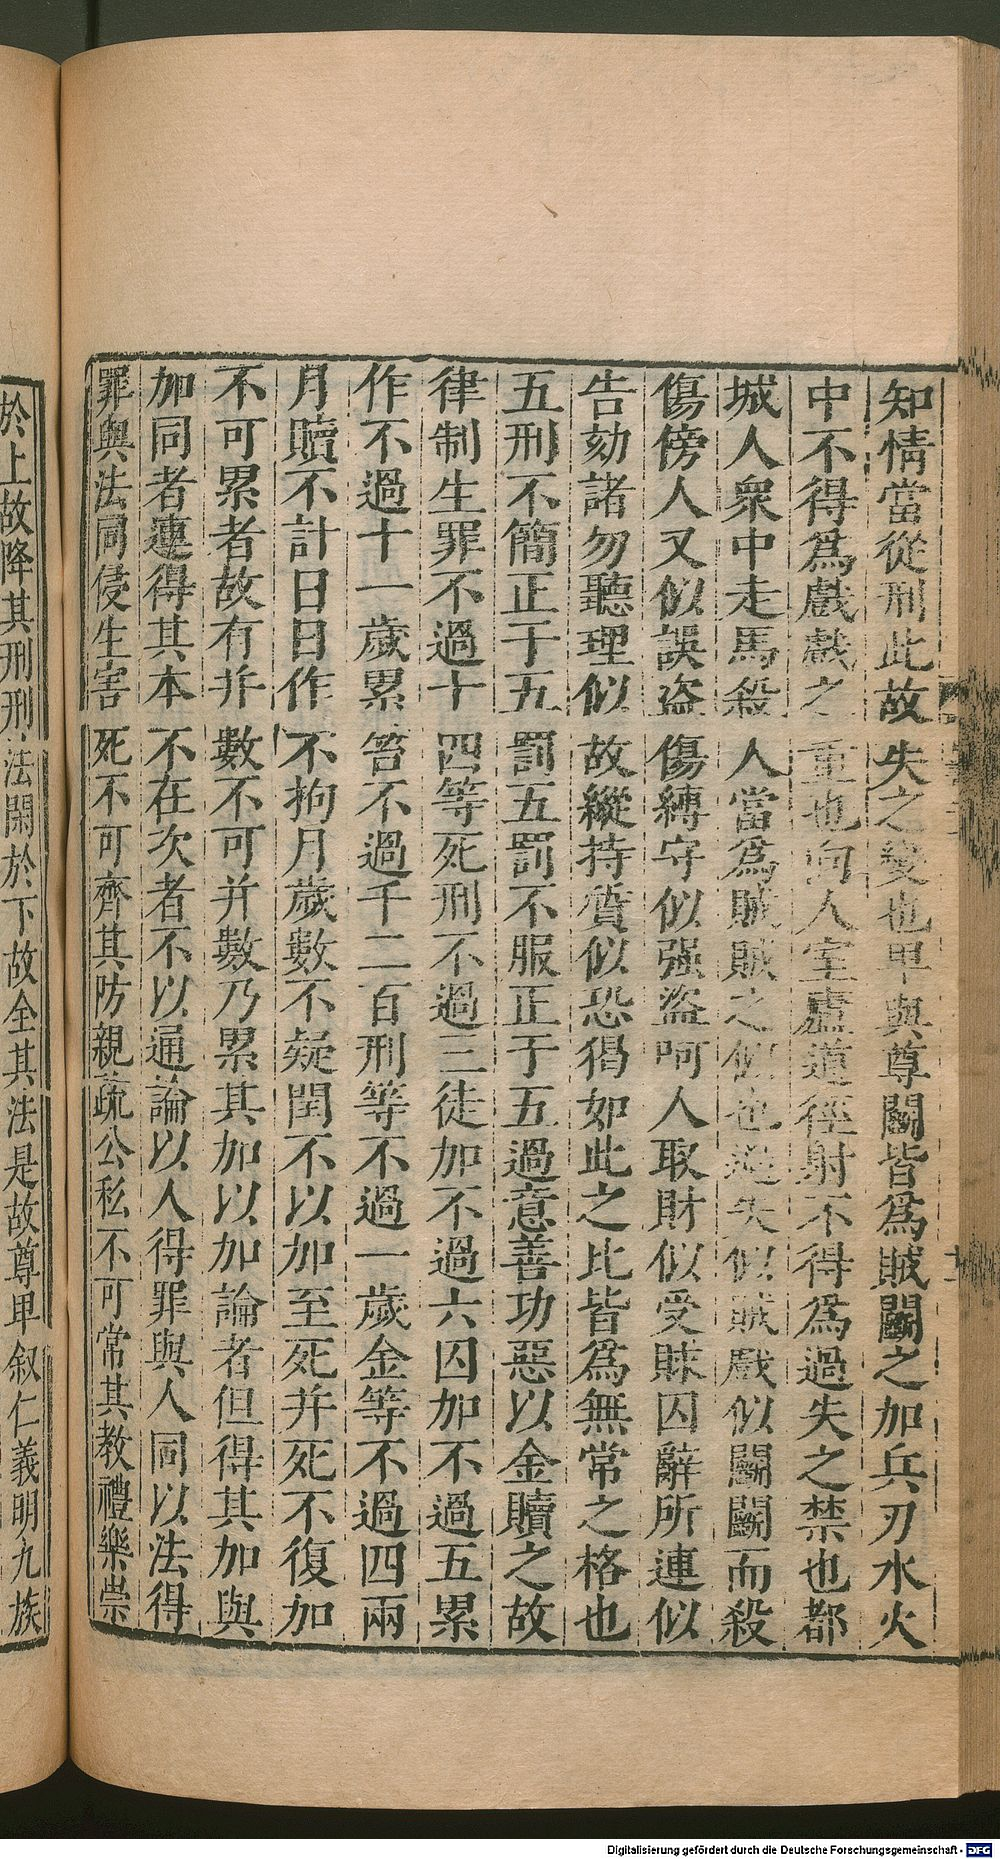 知情當從刑此故失之變也卑與尊鬬皆爲賊鬬之加兵刃水火
中不得爲戲戲之重也向人室廬道徑射不得爲過失之禁也都
城人衆中走馬殺人當爲賊賊之似也過失似賊戲似鬬鬬而殺
傷傍人又似誤盜傷縛守似强盜呵人取財似受賕囚辭所連似
告劾諸勿聽理似故縱持質似恐猲如此之比皆爲無常之格也
五刑不簡正于五罰五罰不服正于五過意善功惡以金贖之故
律制生罪不過十四等死刑不過三徒加不過六囚加不過五累
作不過十一歲累笞不過千二百刑等不過一歲金等不過四兩
月贖不計日日作不拘月歲數不疑閏不以加至死并死不復加
不可累者故有并數不可并數乃累其加以加論者但得其加與
加同者連得其本不在次者不以通論以人得罪與人同以法得
罪與法同侵生害死不可齊其防親疏公私不可常其教禮樂崇
於上故降其刑刑法閑於下故全其法是故尊卑叙仁義明九族
Digitalisierung gefördert durch die Deutsche Forschungsgemeinschaft - DFG